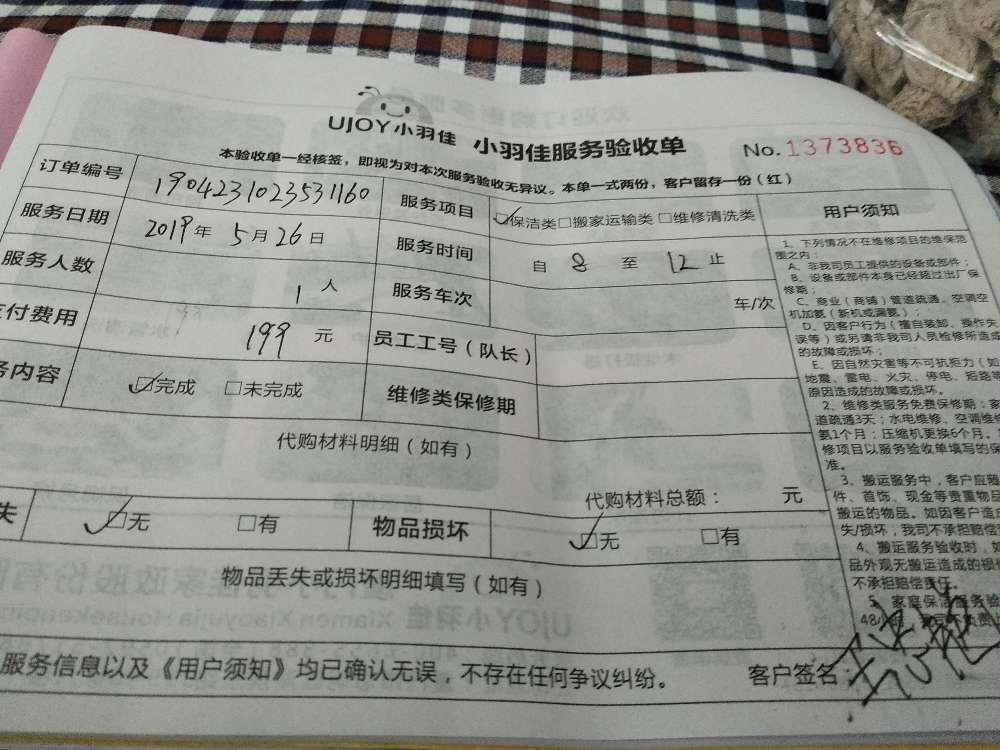 UJOY小羽佳 小羽佳服务验收单 No.1373836
本验收单一经核签，即视为对本次服务验收无异议。本单一式两份，客户留存一份（红）
订单编号 1904231023531160 服务项目 ☑保洁类□搬家运输类□维修清洗类
服务日期 2019年 5月26日 服务时间 自 8 至 12 止
服务人数 1 人 服务车次 车/次
付费用 199 元 员工工号（队长）
务内容 ☑完成 □未完成 维修类保修期
代购材料明细（如有）
代购材料总额： 元
失 ☑无 □有 物品损坏 ☑无 □有
物品丢失或损坏明细填写（如有）
服务信息以及《用户须知》均已确认无误，不存在任何争议纠纷。 客户签名：
用户须知
1、下列情况不在维修项目的维保范
围之内：
A、非我司员工提供的设备或部件；
B、设备或部件本身已经超过出厂保
修期；
C、商业（商铺）管道疏通、空调空
机加氨（新机或漏氨）；
D、因客户行为（擅自装卸、操作失
误等）或另请非我司人员检修所造成
的故障或损坏；
E、因自然灾害等不可抗拒力（如
地震、雷电、火灾、停电、短路等
原因造成的故障或损坏。
2、维修类服务免费保修期：家
道疏通3天；水电维修、空调维
氨1个月；压缩机更换6个月。
修项目以服务验收单填写的保
准。
3、搬运服务中，客户应
件、首饰、现金等贵重物品
搬运的物品。如因客户造成
失/损坏，我司不承担赔偿
4、搬运服务验收时，如
品外观无搬运造成的损
不承担赔偿责任。
5、家庭保洁服务验
48小